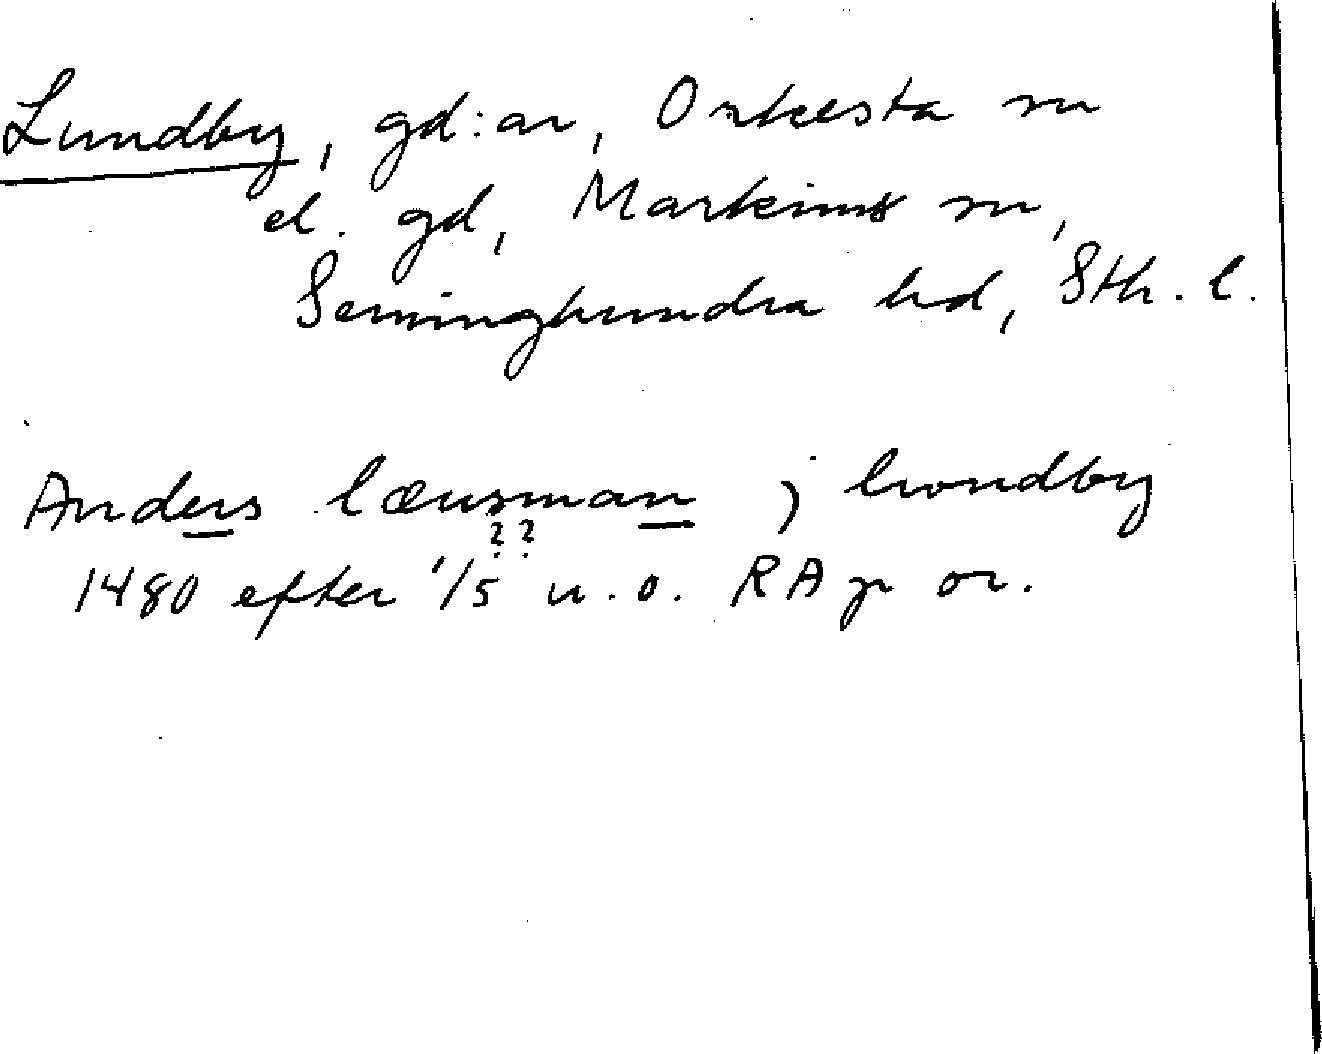 Lundby, gd:ar, Orkesta sn
el. gd, Markims sn,
Seminghundra hd, Sth. l.
Anders lænsman j lwndby
??
1480 efter 1/5 u.o. RA p or.